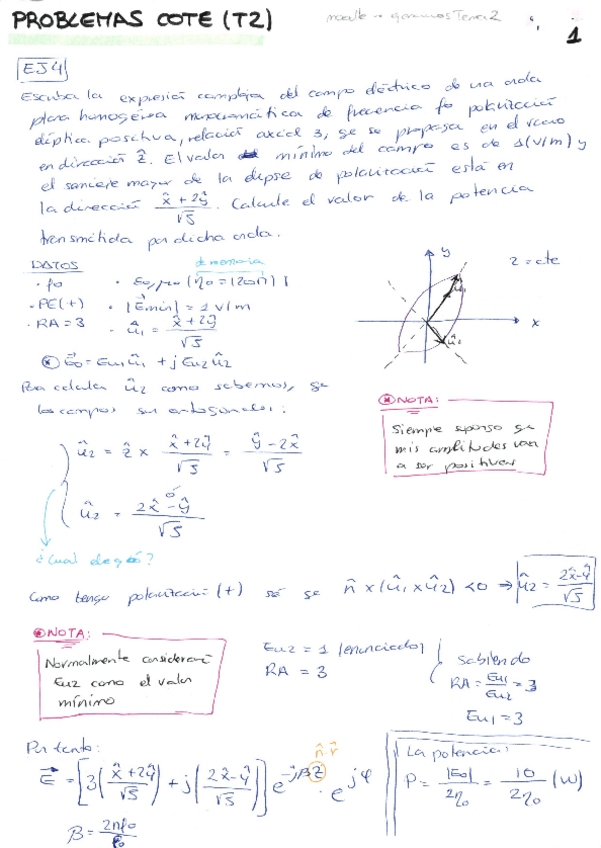 PROBLEMAS COTE (T2)
moodle → gammos Tema 2
1
EJ4
Escriba la expresión compleja del campo eléctrico de una onda
plana homogénea monocromática de frecuencia fo polarización
elíptica positiva, relación axial 3, que se propaga en el vacío
en dirección ẑ. El valor mínimo del campo es de 1(v/m) y
el semieje mayor de la elipse de polarización está en
la dirección x̂ + 2ŷ / √5 . Calcule el valor de la potencia
transmitida por dicha onda.
DATOS
de memoria
· fo
· εo, μo (η₀ = 120π)
· PE(+)
· |E⃗min| = 1 v/m
· RA = 3
· û₁ = x̂ + 2ŷ / √5
* E⃗o = Eu₁û₁ + jEu₂û₂
y
z = cte
x
û₁
û₂
Para calcular û₂ como sabemos, que
los campos son ortogonales:
* NOTA:
Siempre supongo que
mis amplitudes van
a ser positivas
û₂ = ẑ × x̂ + 2ŷ / √5 = ŷ - 2x̂ / √5
ó
û₂ = 2x̂ - ŷ / √5
¿Cual de es?
Como tengo polarización (+) sé que n̂ × (û₁ × û₂) < 0 ⇒ û₂ = 2x̂ - ŷ / √5
* NOTA:
Normalmente consideraré
Eu₂ como el valor
mínimo
Eu₂ = 1 (enunciado)
RA = 3
sabiendo
RA = Eu₁ / Eu₂ = 3
Eu₁ = 3
Por tanto:
n̂·r̂
E⃗ = [3(x̂ + 2ŷ / √5) + j(2x̂ - ŷ / √5)] e^-jβz · e^jφ
β = 2πfo
La potencia:
P = |Eo| / 2η₀ = 10 / 2η₀ (W)